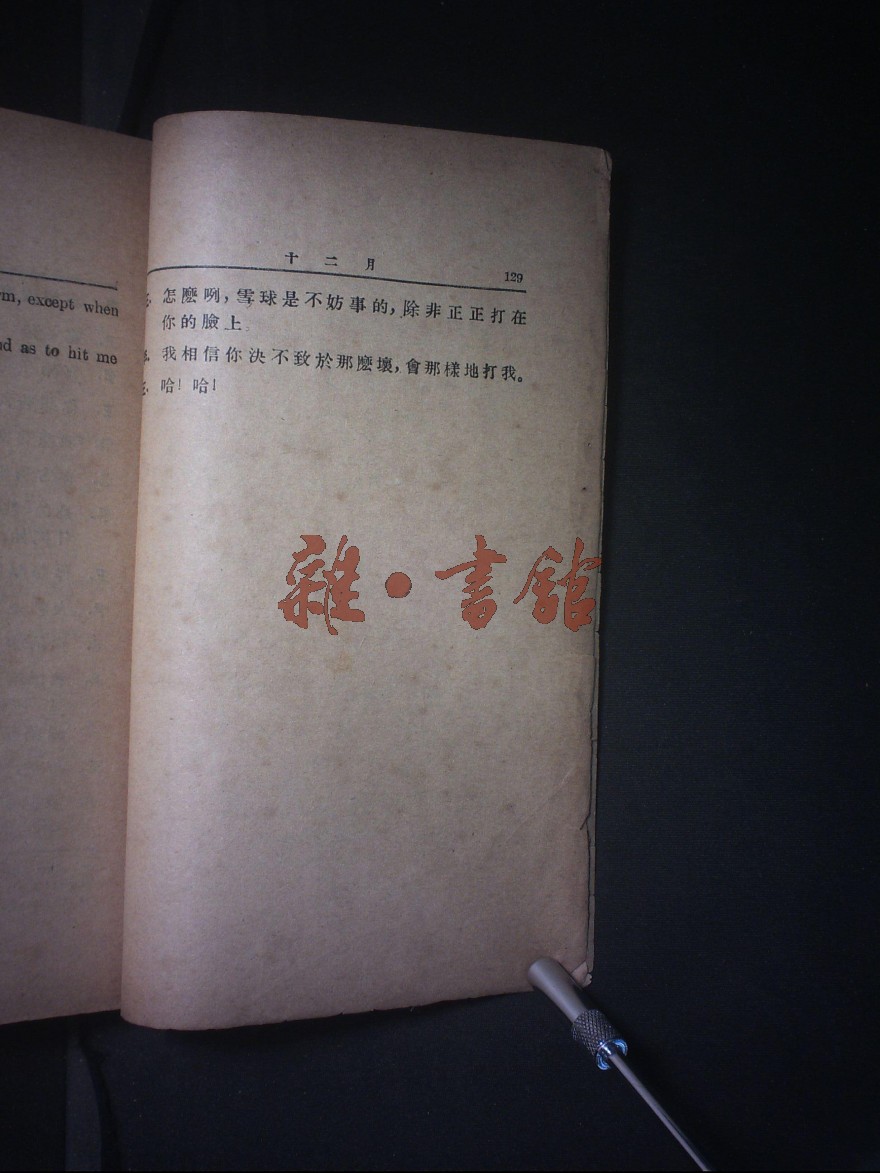 rm, except when
nd as to hit me
十二月 129
怎麽咧,雪球是不妨事的,除非正正打在
你的臉上。
我相信你決不致於那麽壞,會那樣地打我。
哈!哈!
雜·書館